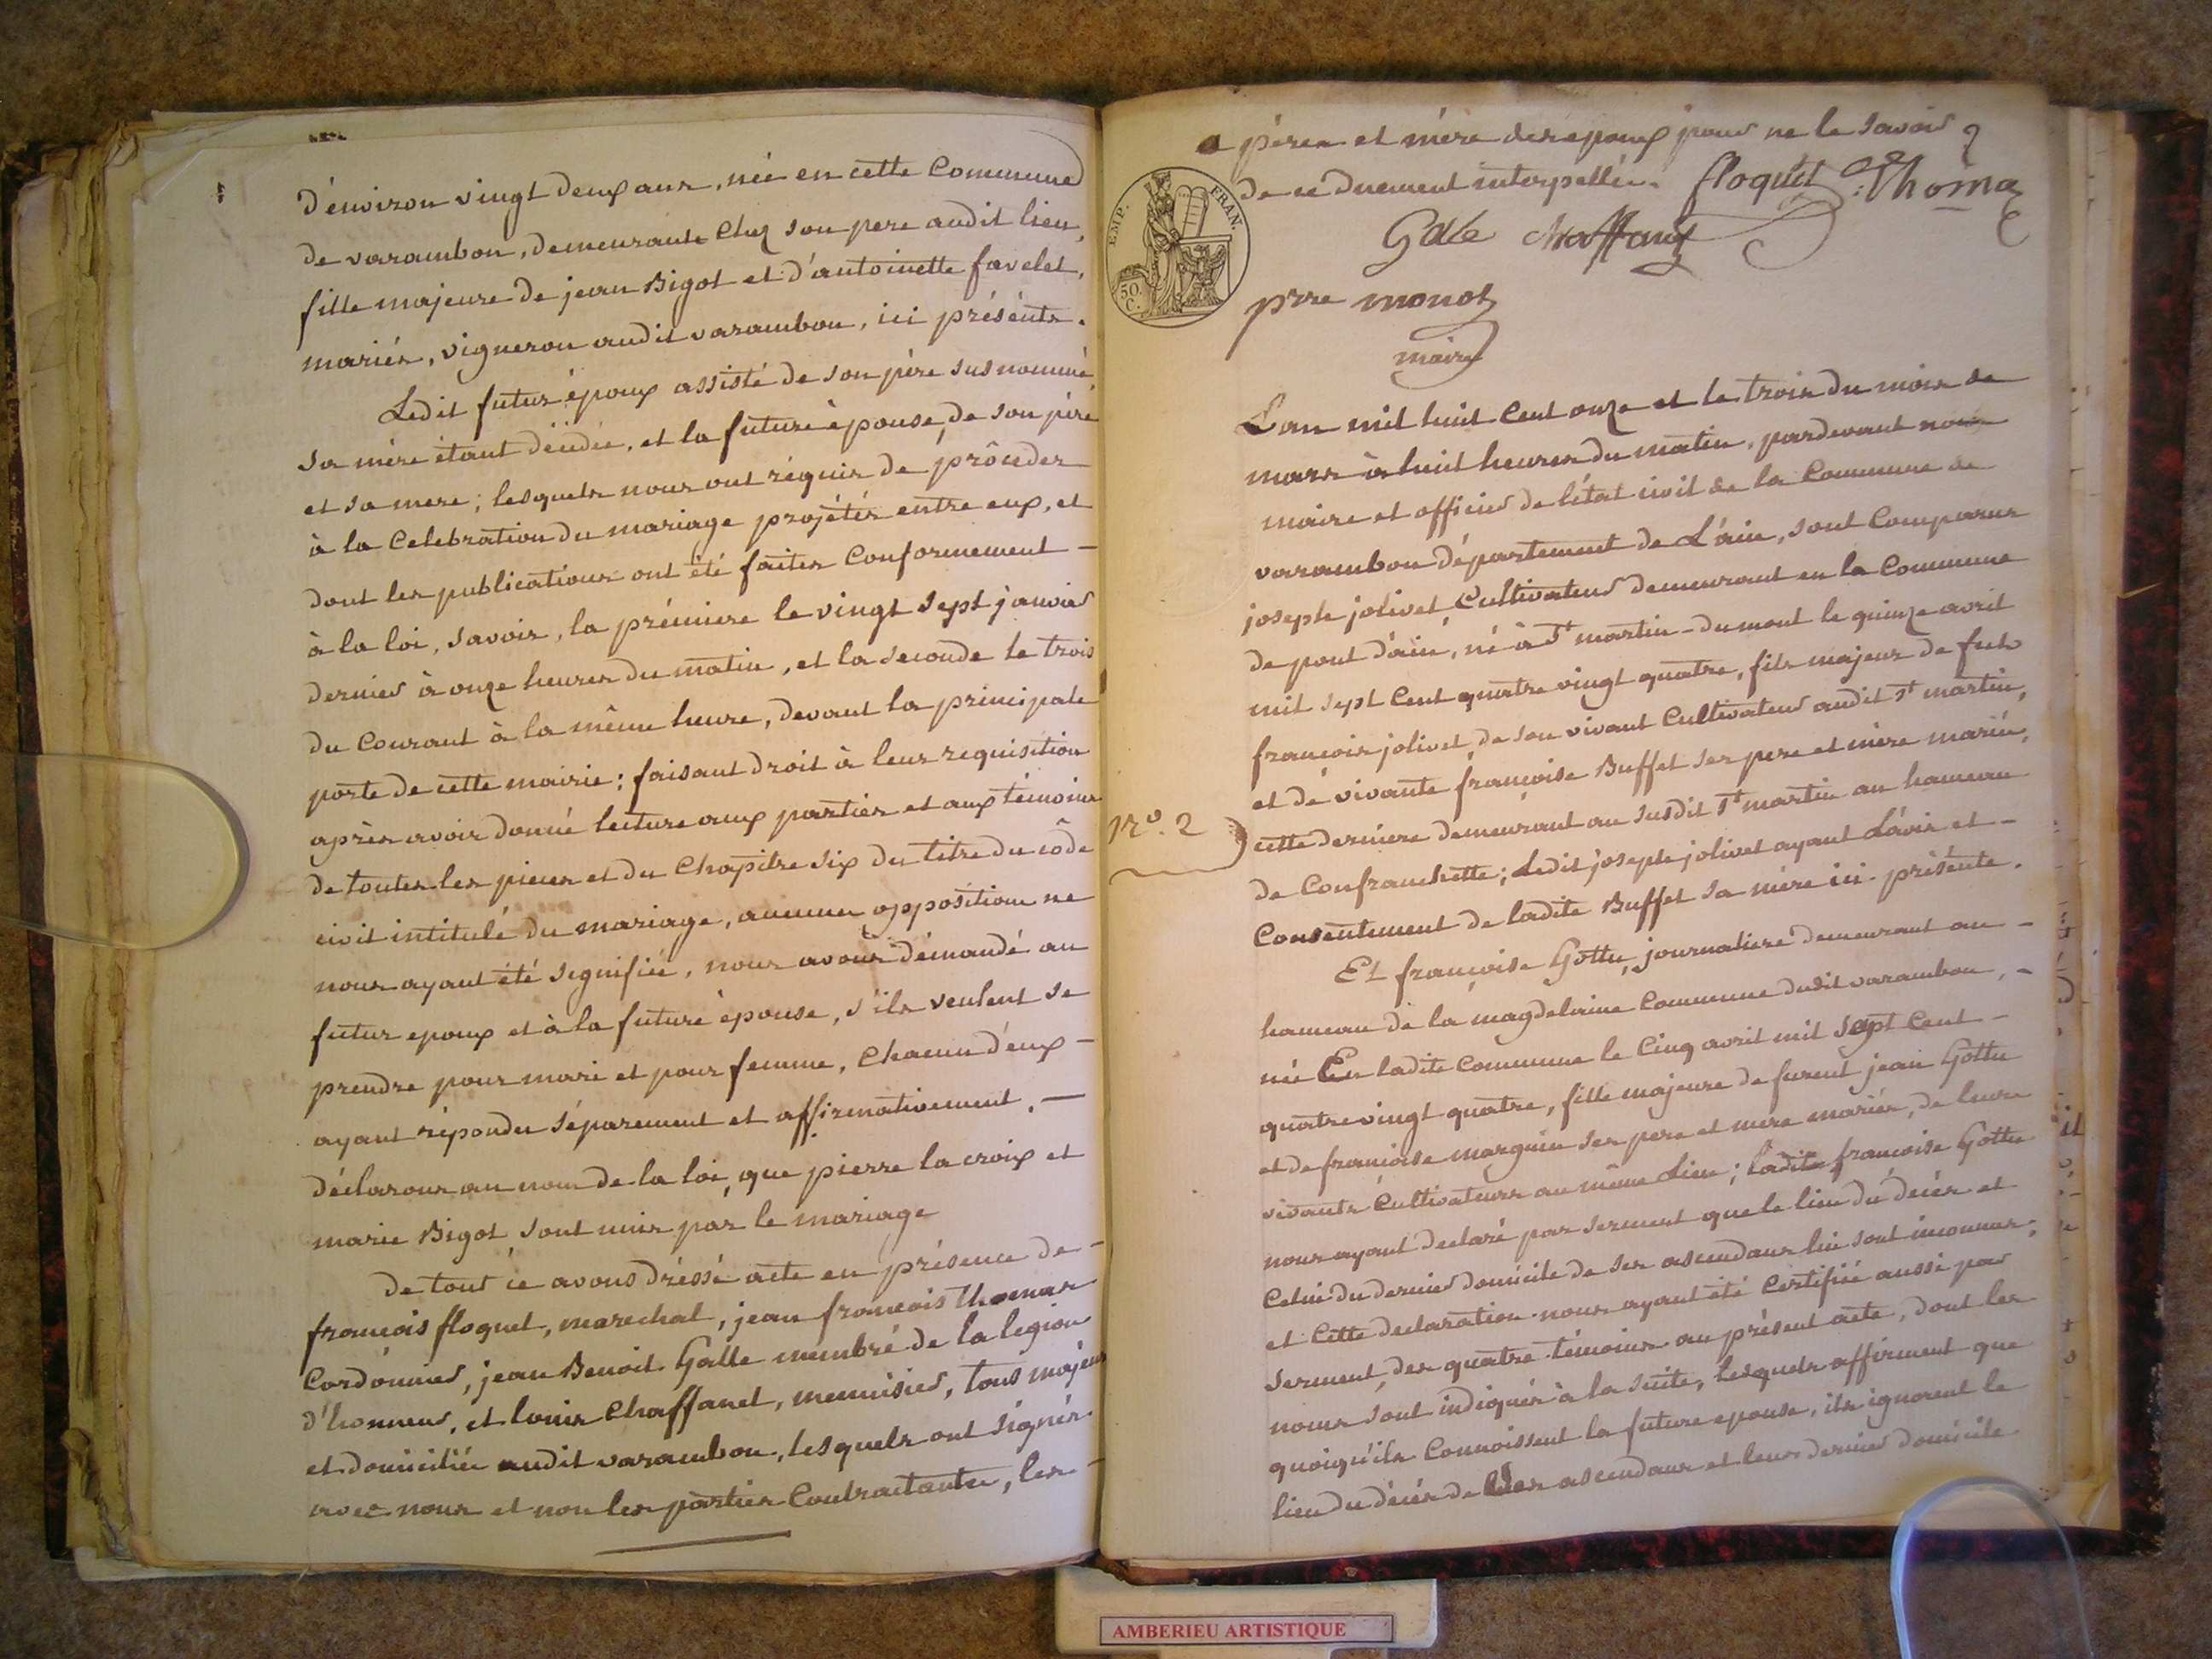 d'environ vingt deux ans, née en cette Commune
de varambon, demeurante Chez son pere audit lieu,
fille majeure de jean Bigot et d'antoinette favelet,
mariés, vigneron audit varambon, ici présents.
Ledit futur époux assisté de son père susnommé,
sa mère étant décédée, et la future épouse, de son père
et sa mere; lesquels nous ont réquis de procéder
à la Celebration du mariage projétés entre eux, et
dont les publications ont été faites Conformement -
à la loi, savoir, la prémiere le vingt sept janvier
dernier à onze heures du matin, et la seconde le trois
du Courant à la même heure, devant la principale
porte de cette mairie; faisant droit à leur requisition
après avoir donné lecture aux parties et aux témoins
de toutes les pieces et du Chapitre six du titre du côde
civil intitulé du mariage, aucunes opposition ne
nous ayant été signifiée, nous avons démandé au
futur epoux et à la future épouse, s'ils veulent se
prendre pour mari et pour femme, Chacun d'eux -
ayant répondu séparement et affirmativement, -
déclarons au nom de la loi, que pierre la croix et
marie Bigot sont unis par le mariage
De tout ce avons dréssé acte en présence de -
françois floquet, marechal, jean francois Thomas
Cordonnier, jean Benoit Galle membre de la legion
d'honneur, et louis Chaffanel, menuisier, tous majeurs
et domiciliés audit varambon, lesquels ont signés
avec nous et non les parties Contractantes, les -
pères et mère des epoux pour ne le savoir
de ce duement interpellés. floquet Thomas
Galle chaffanel
pre monoz
maire
EMP. FRAN.
50 C.
L'an mil huit Cent onze et le trois du mois de
mars à huit heures du matin, pardevant nous
maire et officier de l'état civil de la Commune de
varambon département de L'ain, sont Comparus
joseph jolivet, Cultivateur demeurant en la Commune
de pont d'ain, né à St martin-dumont le quinze avril
mil sept Cent quatre vingt quatre, fils majeur de feu
francois jolivet, de son vivant Cultivateur audit st martin,
et de vivante françoise Buffet ses pere et mère mariés,
No. 2
cette derniere demeurant au susdit St martin au hameau
de Confranchette; Ledit joseph jolivet ayant L'avis et -
Consentement de ladite Buffet sa mère ici présente.
Et françoise Gottu, journaliere demeurant au -
hameau de la magdelaine Commune dudit varambon, -
née En ladite Commune le Cinq avril mil sept Cent -
quatrevingt quatre, fille majeure de furent jean Gottu
et de françoise marguin ses pere et mere mariés, de leurs
vivants Cultivateurs au même Lieu; Ladite francoise Gottu
nous ayant declaré par serment que le lieu du décès et
Celui du dernier domicile de ses ascendans lui sont inconnus;
et Cette declaration nous ayant été Certifiée aussi par
serment, des quatre témoins au présent acte, dont les
noms sont indiqués à la suite, Lesquels affirment que
quoiqu'ils Connoissent la future epouse, ils ignorent le
lieu du décès de ses ascendans et leur dernier domicile
AMBERIEU ARTISTIQUE